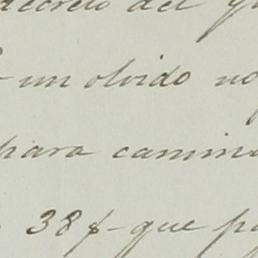 decreto del
un olvido no
para camin
38 $ que pa